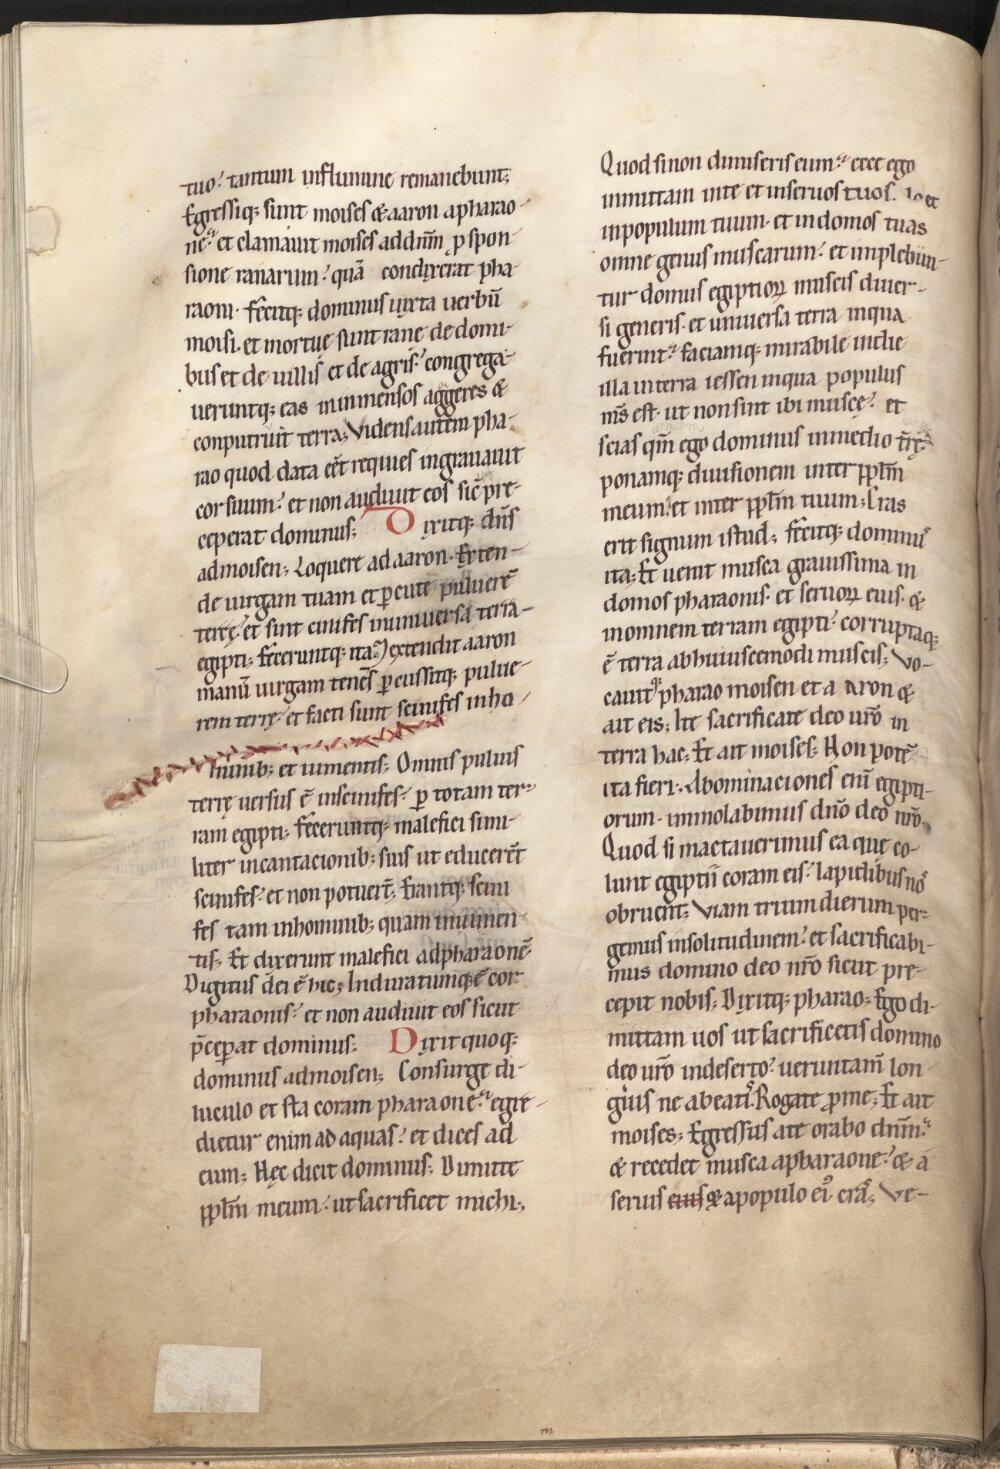 tuo? tantum in flumine remanebunt;
Egressiq; sunt moises & aaron a pharao-
ne? et clamauit moises ad dn̄m p spon-
sione ranarum? quā condixerat pha-
raoni. fēcitq; dominus iuxta uerbū
moisi. et mortue sunt rane de domi-
bus et de uillis et de agris? congrega-
ueruntq; eas in inmensos aggeres &
conputruit terra; Videns autem pha-
rao quod data eēt requies ingrauauit
cor suum? et non audiuit eos sic̄ pre-
ceperat dominus; Dixitq; dn̄s
ad moisen; Loquere ad aaron. Exten-
de uirgam tuam et pcute puluerē
terrę? et sint cinifes in uniuersa terra
egipti; feceruntq; ita; extendit aaron
manū uirgam tenēs pcussitq; pulue-
rem terrę? et facti sunt scinifes in ho-
minib; et iumentis; Omnis puluis
terrę uersus ē in scinifes? p totam ter-
ram egipti; feceruntq; malefici simi-
liter incantacionib; suis ut educerēt
scinifes? et non potuer̄t; Erantq; scini
fes tam in hominib; quam in iumen-
tis; Et dixerunt malefici ad pharaonē
Digitus dei ē hic; Induratumq; ē cor
pharaonis? et non audiuit eos sicut
p̄cepat dominus; Dixit quoq;
dominus ad moisen; Consurge di-
luculo et sta coram pharaone? egre-
dietur enim ad aquas? et dices ad
eum; Hęc dicit dominus; Dimitte
pplm̄ meum? ut sacrificet michi;
Quod si non dimiseris eum? ecce ego
inmittam in te et in seruos tuos. et
in populum tuum. et in domos tuas
omne genus muscarum? et implebun-
tur domus egiptioꝝ muscis diuer-
si generis. et uniuersa terra in qua
fuerint? faciamq; mirabile in die
illa in terra iessen in qua populus
m̄s est. ut non sint ibi muscę? et
scias qm̄ ego dominus in medio t̄rę
ponamq; diuisionem inter pplm̄
meum. et inter pplm̄ tuum; Cras
erit signum istud; fēcitq; dominu᷒
ita; Et uenit musca grauissima in
domos pharaonis. et seruoꝝ eius. &
in omnem terram egipti? corruptaq;
ē terra ab huiuscemodi muscis; Vo-
cauitq; pharao moisen et aaron &
ait eis; Ite sacrificate deo uro᷒ in
terra hac; Et ait moises; Non potē
ita fieri; Abominaciones eni᷒ egipti-
orum. immolabimus dn̄o deo nr̄o.
Quod si mactauerimus ea quę co-
lunt egiptii coram eis? lapidibus nō
obruent; Viam trium dierum per-
gemus in solitudinem? et sacrificabi-
mus domino deo nr̄o sicut pre-
cepit nobis; Dixitq; pharao; Ego di-
mittam uos ut sacrificetis domino
deo ur̄o in deserto? ueruntam̄ lon-
gius ne abeatis. Rogate p me; Et ait
moises; Egressus a te orabo dn̄m?
& recedet musca a pharaone? & a
seruis eius & a populo ei᷒ cra᷒; Ve-